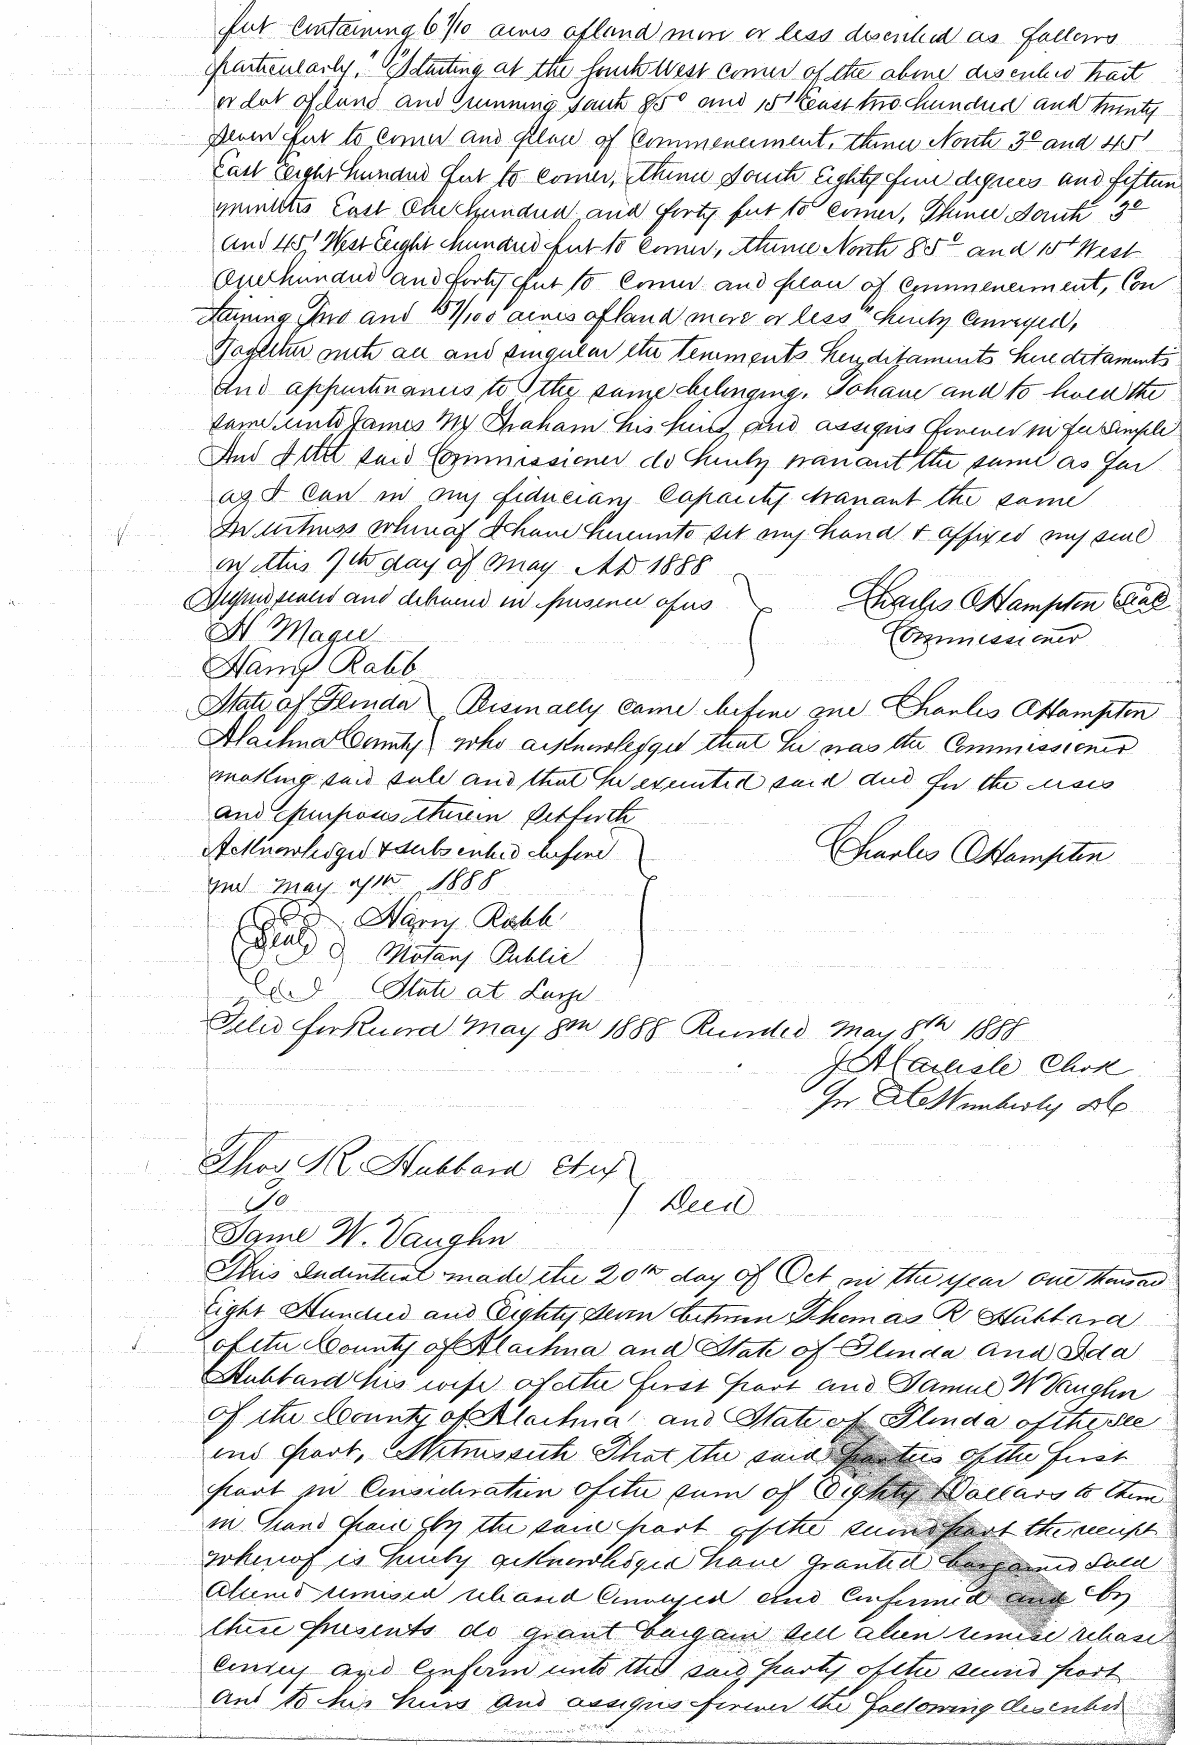 feet containing 6 7/10 acres of land more or less described as follows
particularly, "Starting at the South West corner of the above described trait
or lot of land and running South 85° and 15' East two hundred and twenty
seven feet to corner and place of commencement, thence North 3° and 45'
East Eight hundred feet to corner, thence South Eighty five degrees and fifteen
minutes East One hundred and forty feet to corner, Thence South 3°
and 45' West Eight hundred feet to corner, thence North 85° and 15' West
One hundred and forty feet to corner and place of commencement, Con
taining Two and 57/100 acres of land more or less" hereby conveyed,
Together with all and singular the tenements hereditaments hereditaments
And appurtenances to the same belonging. To have and to hold the
same unto James M Graham his heirs and assigns forever in fee simple
And I the said Commissioner do hereby warrant the same as far
as I can in my fiduciary capacity warrant the same
In witness whereof I have hereunto set my hand & affixed my seal
on this 7th day of May AD 1888
Signed sealed and delivered in presence of us Charles O Hampton Seal
H Magee Commissioner
Harry Rabb
State of Florida Personally came before me Charles O Hampton
Alachua County who acknowledged that he was the Commissioner
making said sale and that he executed said deed for the uses
and purposes therein set forth
Acknowledged & subscribed before Charles O Hampton
me May 7th 1888
Harry Rabb
Seal Notary Public
State at Large
Filed for Record May 8th 1888 Recorded May 8th 1888
J A Carlisle Clerk
Per Wimberly DC
Thos R. Hubbard & ux
To Deed
Same W. Vaughn
This Indenture made the 20th day of Oct in the year one thousand
Eight Hundred and Eighty Seven between Thomas R Hubbard
of the County of Alachua and State of Florida and Ida
Hubbard his wife of the first part and Samuel W Vaughn
of the County of Alachua and State of Florida of the sec
ond part, Witnesseth That the said parties of the first
part in Consideration of the sum of Eighty Dollars to them
in hand paid by the said part of the second part the receipt
whereof is hereby acknowledged have granted bargained sold
aliened remised released conveyed and confirmed and by
these presents do grant bargain sell alien remise release
convey and confirm unto the said party of the second part
and to his heirs and assigns forever the following described